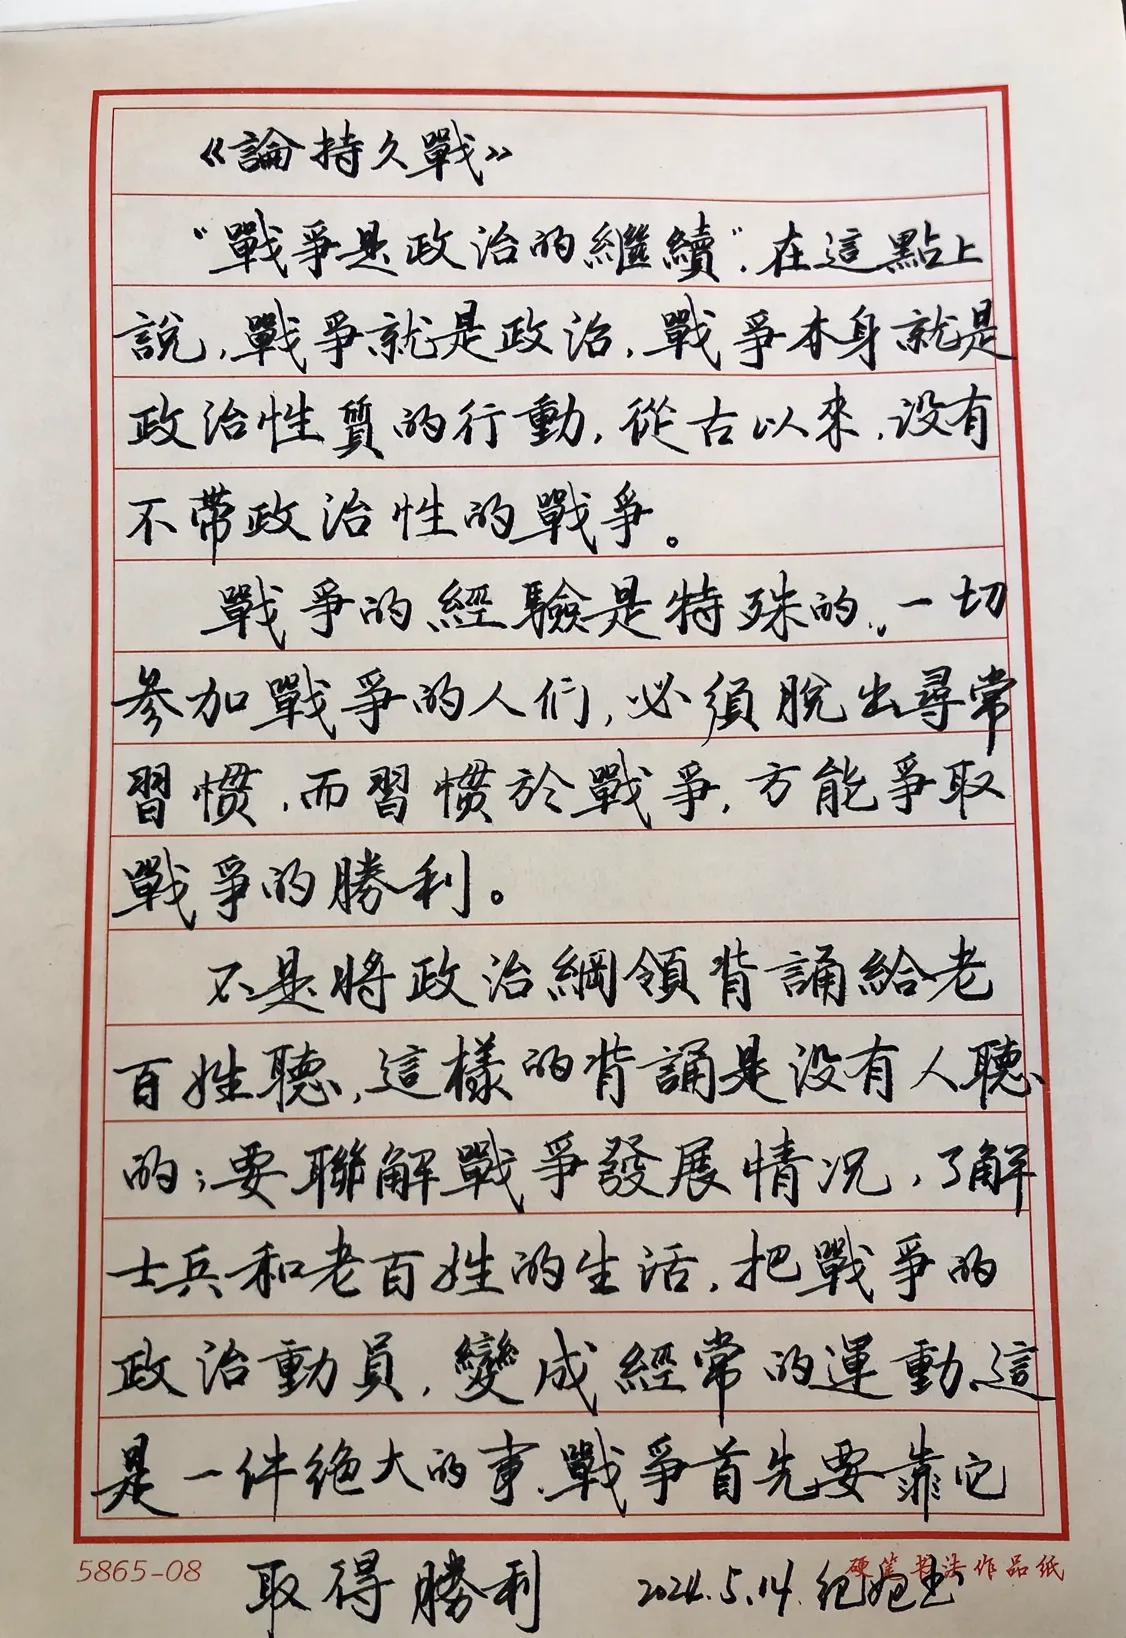 《論持久戰》
“戰爭是政治的繼續”，在這點上
說，戰爭就是政治，戰爭本身就是
政治性質的行動，從古以來，没有
不帶政治性的戰爭。
戰爭的經驗是特殊的，一切
參加戰爭的人们，必須脫出尋常
習慣，而習慣於戰爭，方能爭取
戰爭的勝利。
不是將政治綱領背誦給老
百姓聽，這樣的背誦是没有人聽
的；要聯解戰爭發展情况，了解
士兵和老百姓的生活，把戰爭的
政治動員，變成經常的運動、這
是一件绝大的事、戰爭首先要靠它
取得勝利
5865-08
硬筆书法作品纸
2024.5.14.